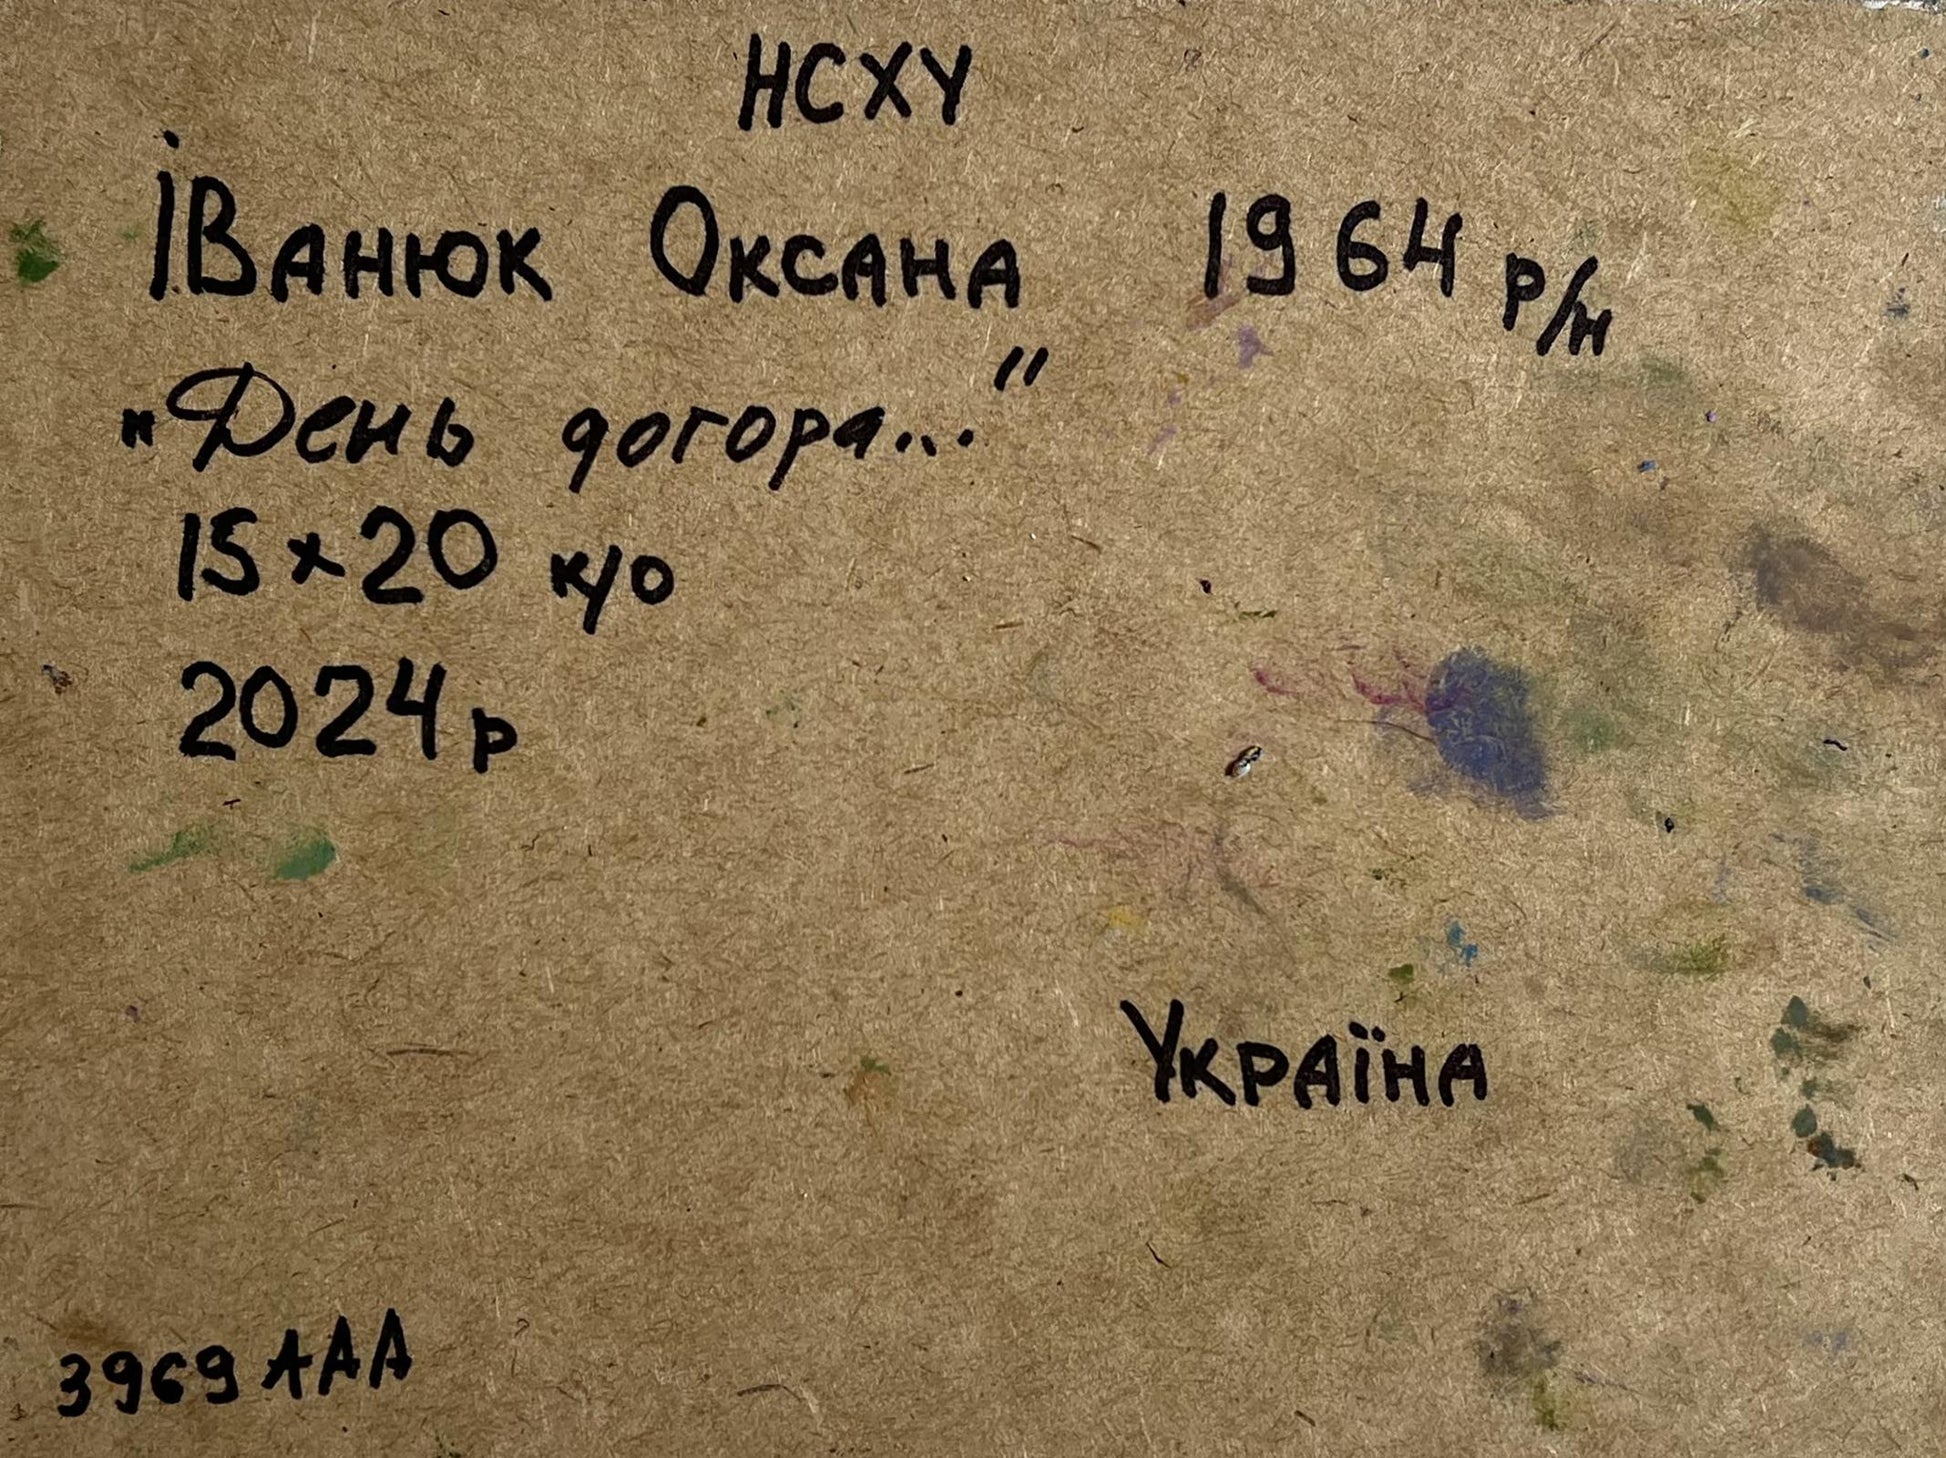 НСХУ
Іванюк Оксана 1964 р/н
„День догора..."
15×20 к/о
2024 р
Україна
3969 ААА